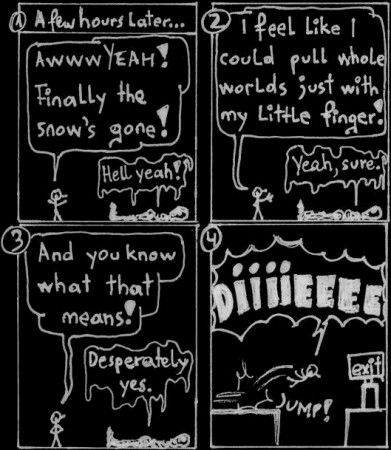 1 A few hours Later...
Awww YEAH!
Finally the
snow's gone!
Hell yeah!
2
I feel like I
could pull whole
worlds just with
my little finger!
Yeah, sure.
3
And you know
what that
means!
Desperately
yes.
4
DiiiiEEEE
exit
JUMP!